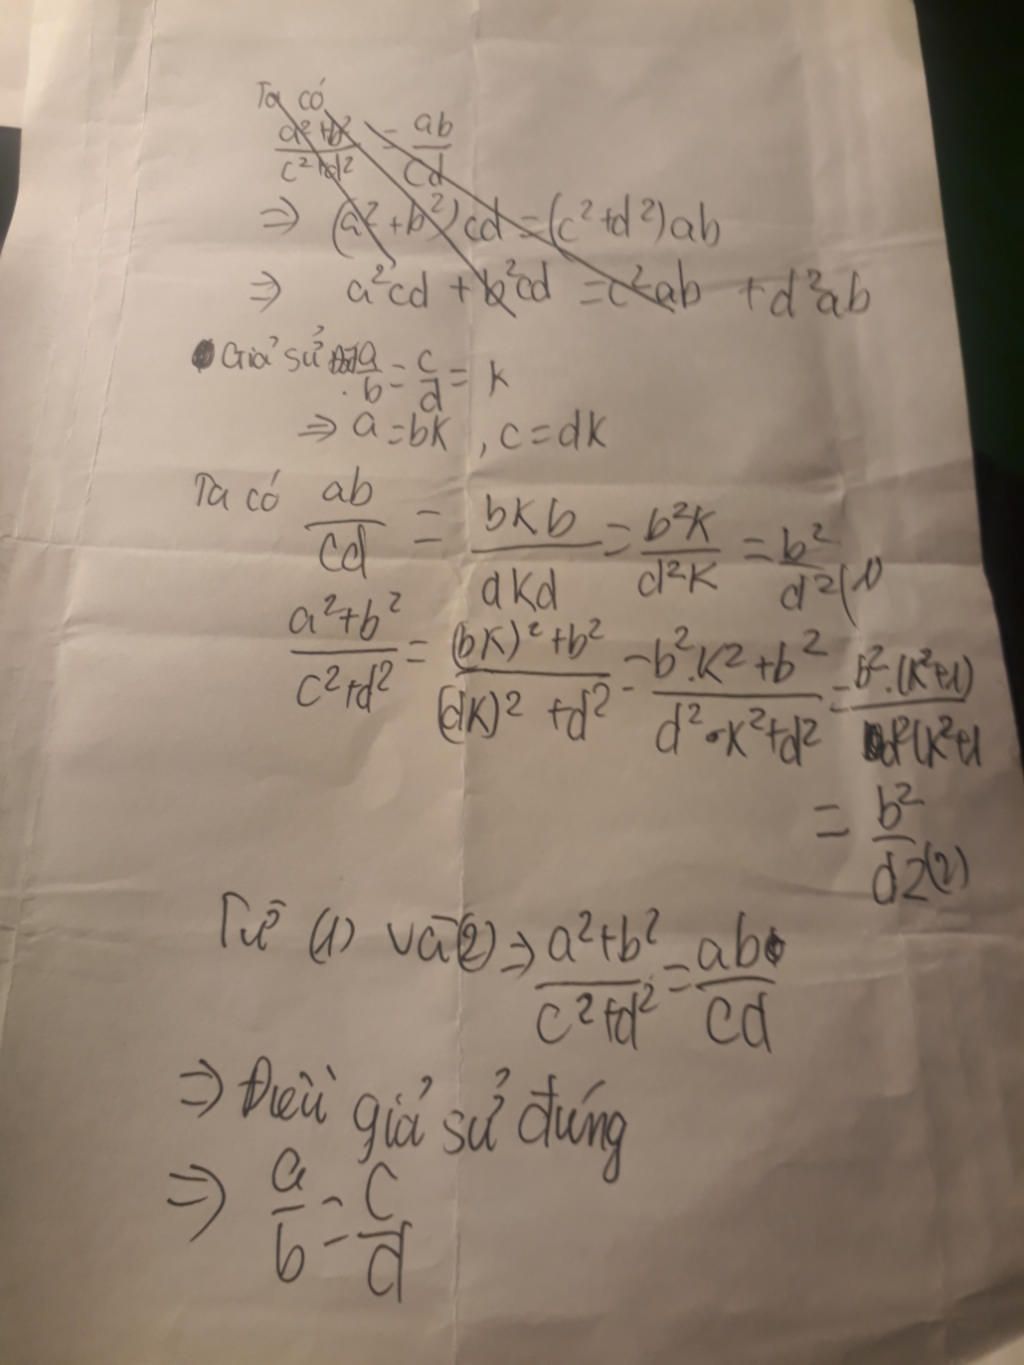 Ta có
a²+b²/c²+d² = ab/cd
⇒ (a²+b²)cd = (c²+d²)ab
⇒ a²cd + b²cd = c²ab + d²ab
Giả sử a/b = c/d = k
⇒ a = bk , c = dk
Ta có ab/cd = bkb/dkd = b²k/d²k = b²/d² (1)
a²+b²/c²+d² = (bk)²+b²/(dk)²+d² = b².k²+b²/d².k²+d² = b².(k²+1)/d²(k²+1
= b²/d2 (2)
Từ (1) và (2) ⇒ a²+b²/c²+d² = ab/cd
⇒ Điều giả sử đúng
⇒ a/b = c/d